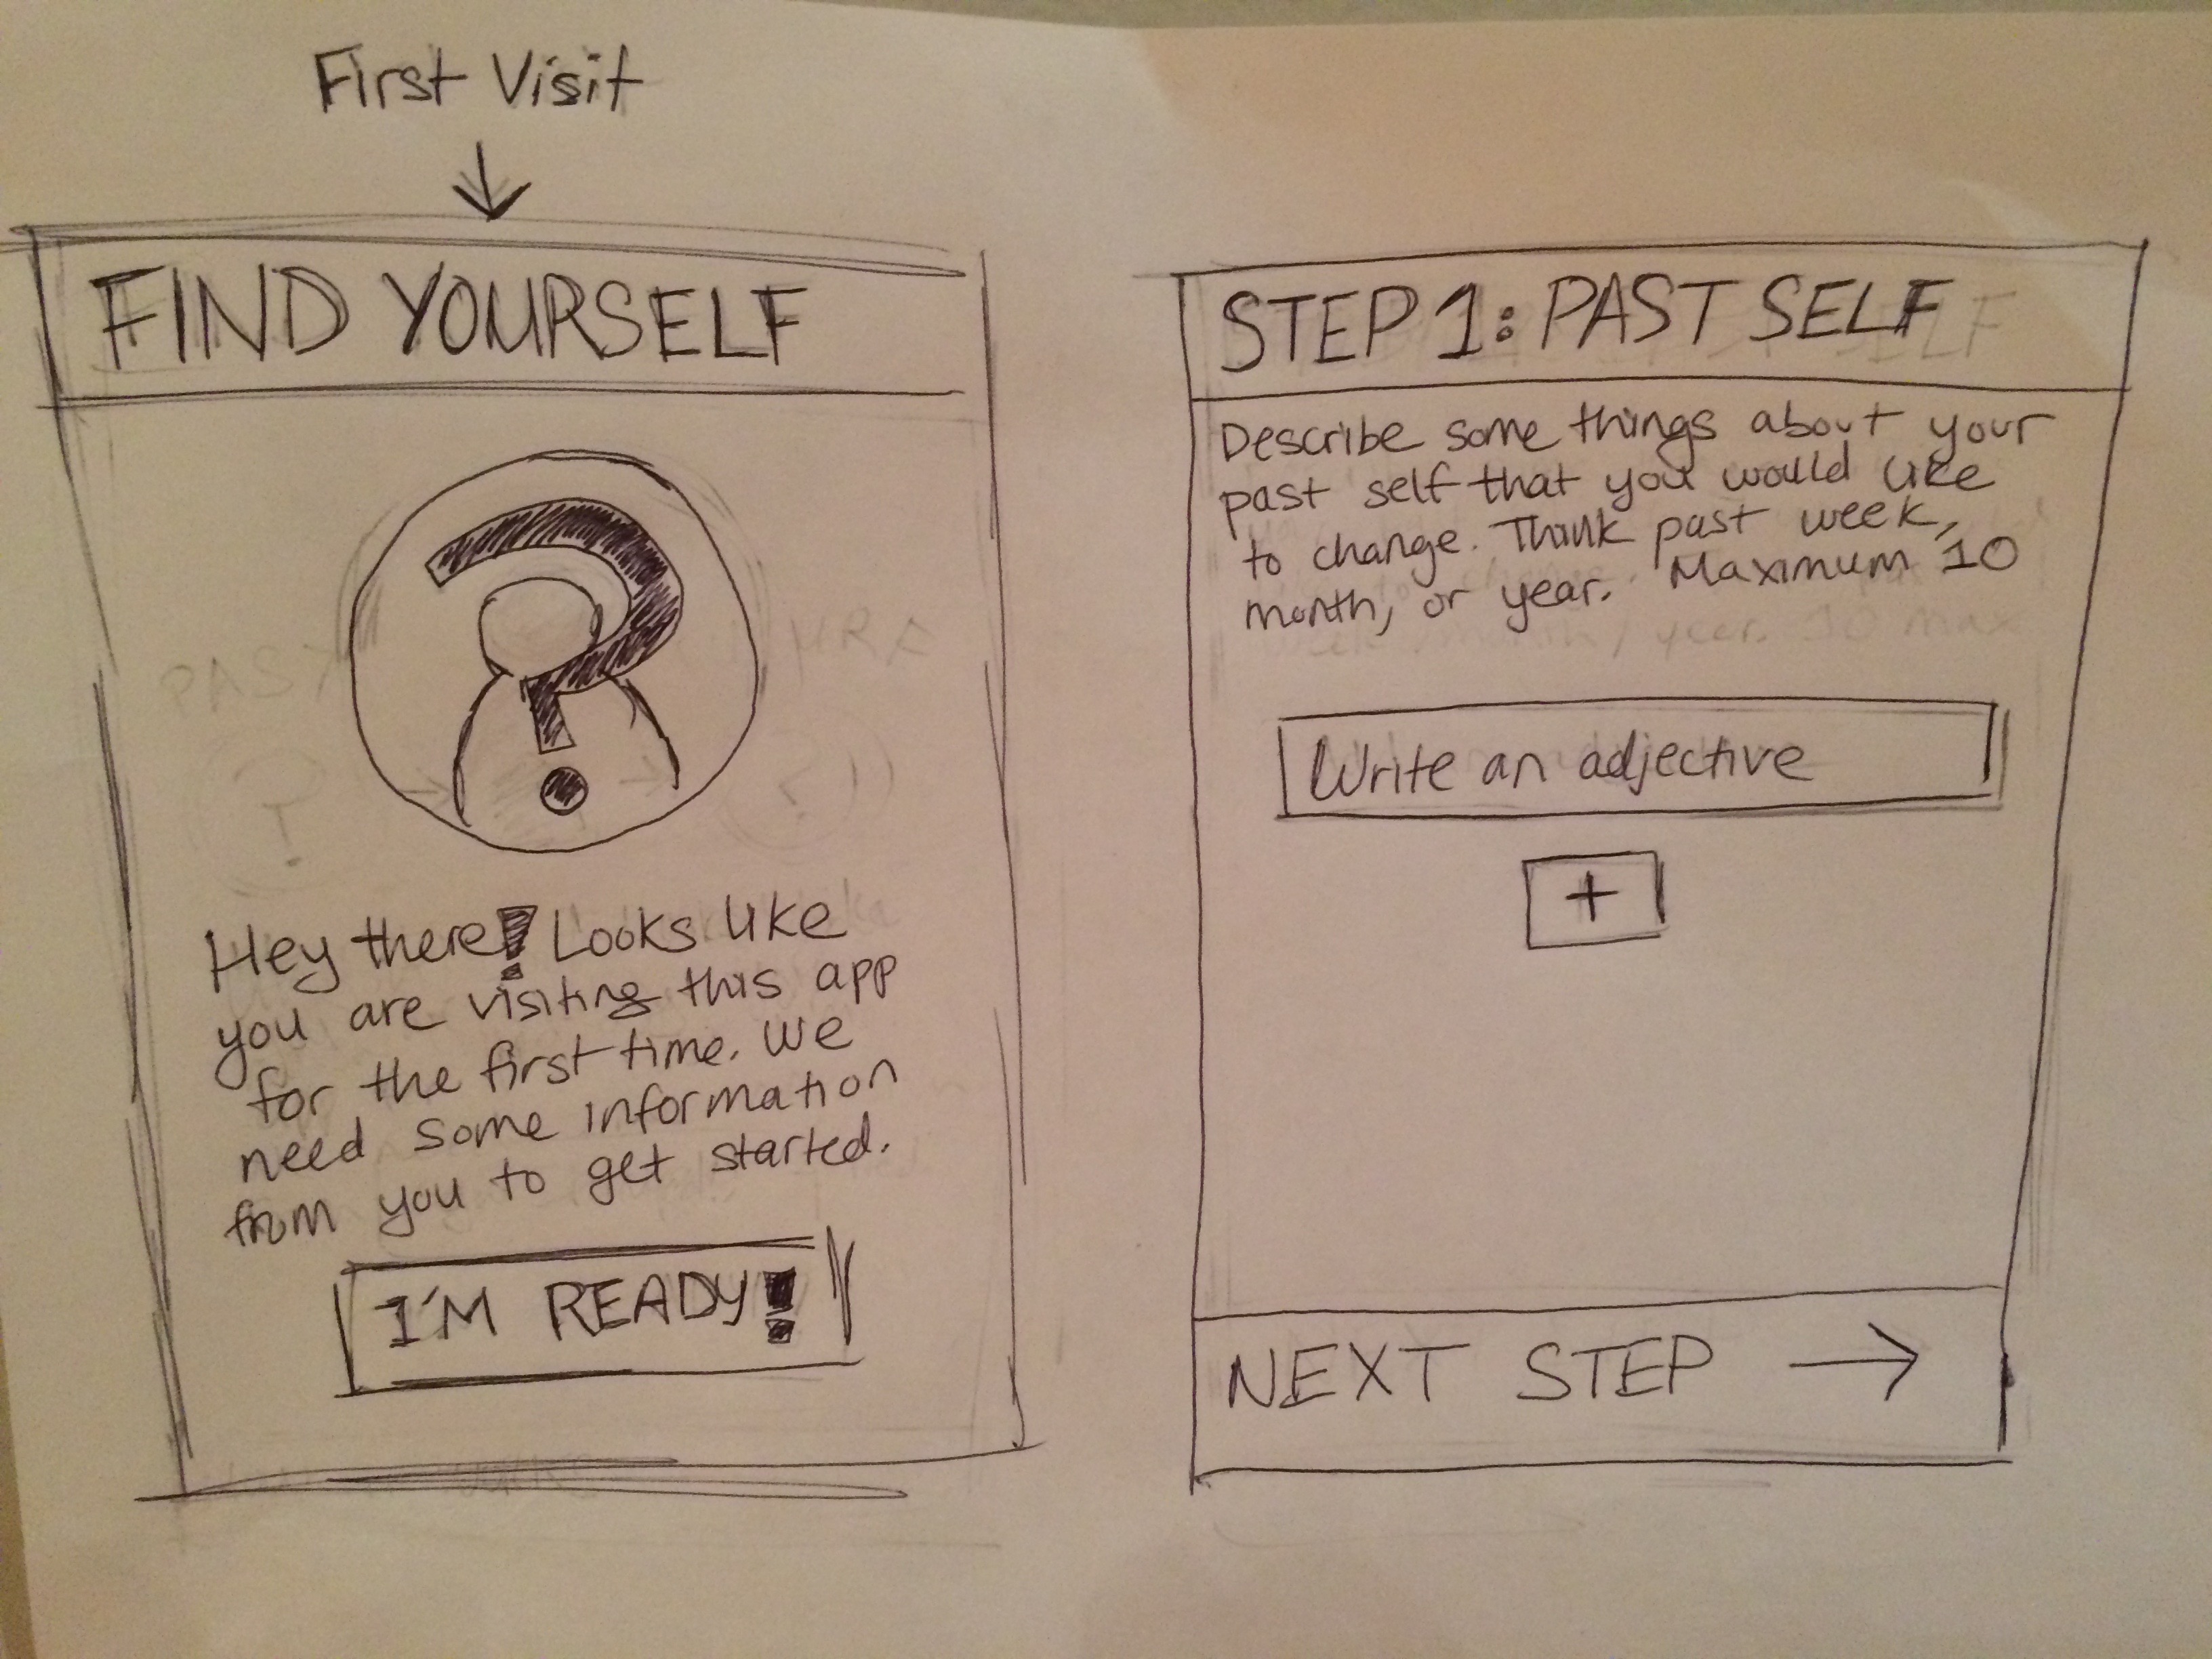 First Visit
FIND YOURSELF
Hey there! Looks like
you are visiting this app
for the first time. We
need some information
from you to get started.
I'M READY!
STEP 1: PAST SELF
Describe some things about your
past self that you would like
to change. Think past week,
month, or year. Maximum 10
Write an adjective
+
NEXT STEP →